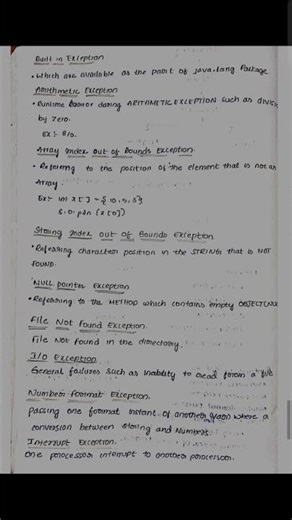 Built in Exception
• Which are available as the part of java.lang Package
Arithmetic Exception
• Runtime Error during ARITMETIC EXCEPTION such as DIVIDE
by zero.
Ex:- 8/0.
Array Index out of Bounds Exception.
• Referring to the position of the element that is not an
Array.
Ex:- int x[] = {10,5,3}
S.O.pln (x[0])
String Index out of Bounds Exception
• Referring character position in the STRING that is NOT
FOUND.
NULL pointer Exception
• Referring to the METHOD which contains empty OBJECT
File Not found Exception.
File not found in the directory.
I/O Exception
General failures such as inability to read form a file
Number Format Exception.
passing one format instant of another where a
conversion between string and Numbers.
Interrupt Exception.
one porcessor interrupt to another porcessor.